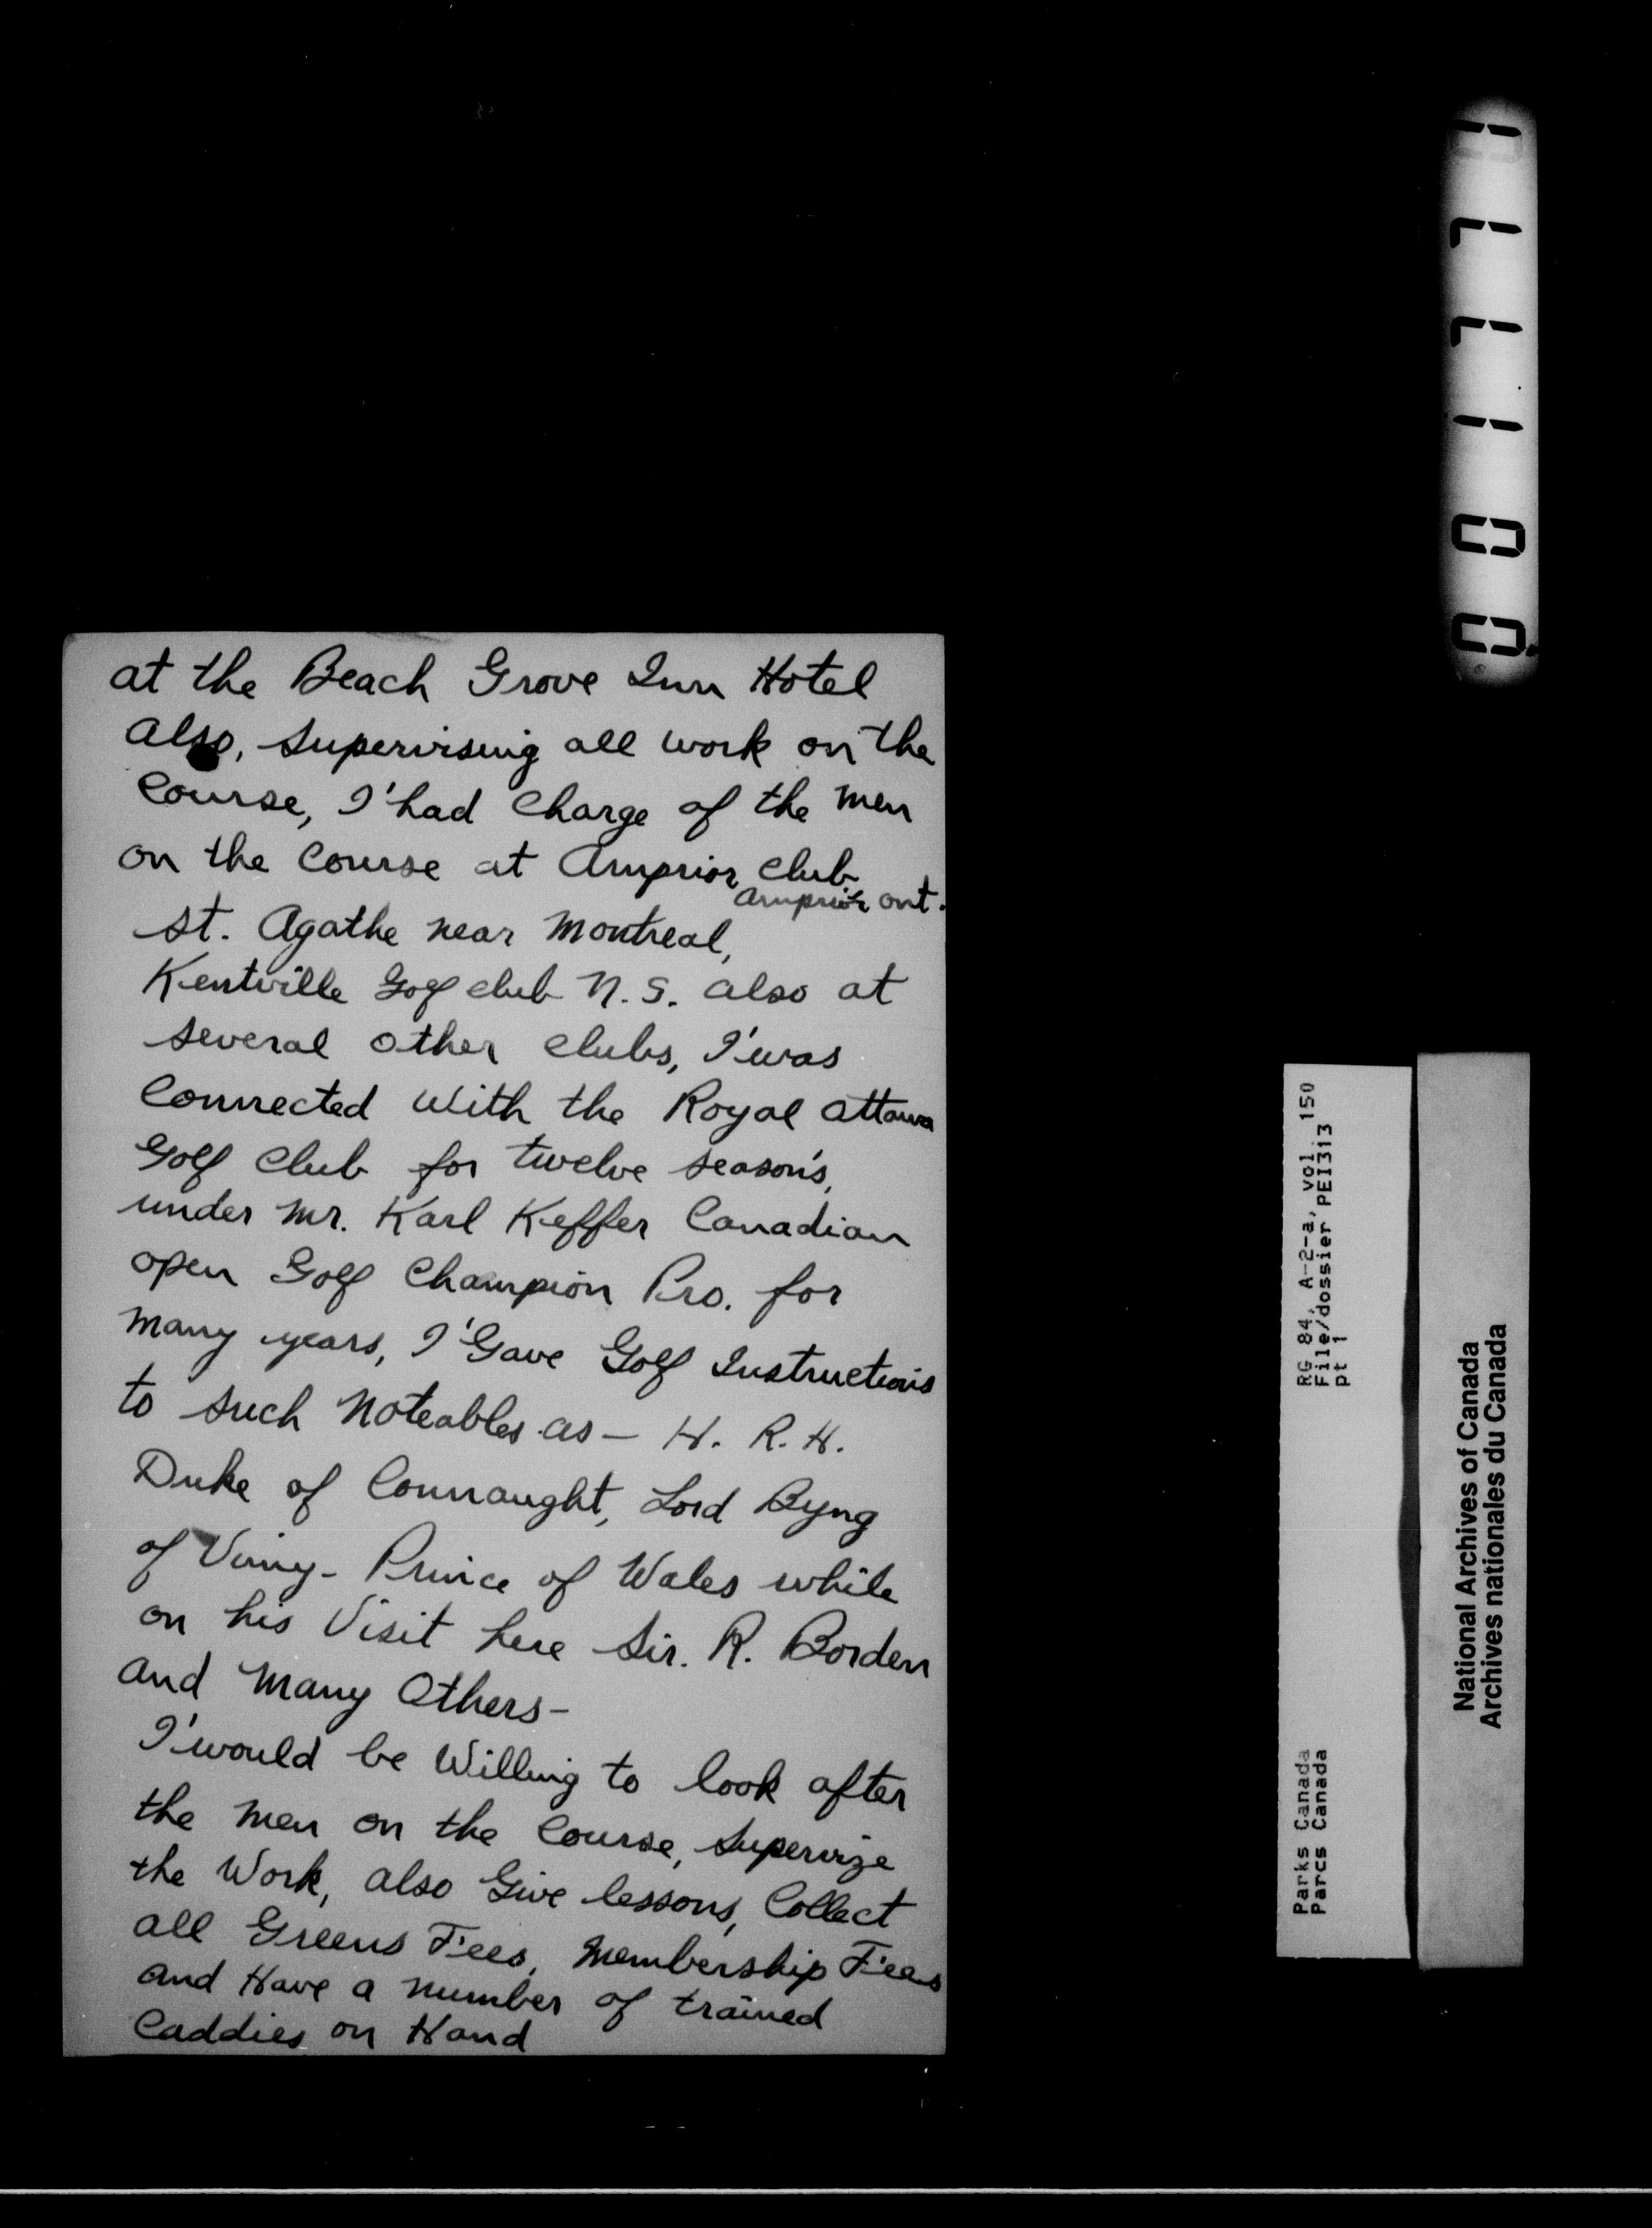 at the Beach Grove Inn Hotel
also, supervising all work on the
Course, I'had Charge of the Men
on the Course at Arnprior Club
Arnprior ont.
St. Agathe near Montreal,
Kentville Golf club N.S. also at
several other clubs, I'was
Connected With the Royal Ottawa
Golf Club for twelve season's,
under Mr. Karl Keffer Canadian
open Golf Champion Pro. for
Many years, I'Gave Golf Instructions
to such Noteables as - H. R. H.
Duke of Connaught, Lord Byng
of Vimy - Prince of Wales while
on his Visit here Sir. R. Borden
and Many Others -
I'would be Willing to look after
the Men on the Course, Supervize
the Work, also Give lessons, Collect
all Greens Fees, Membership Fees
and Have a number of trained
Caddies on Hand
001771
RG 84, A-2-a, vol. 150
File/dossier PEI313
pt 1
Parks Canada
Parcs Canada
National Archives of Canada
Archives nationales du Canada